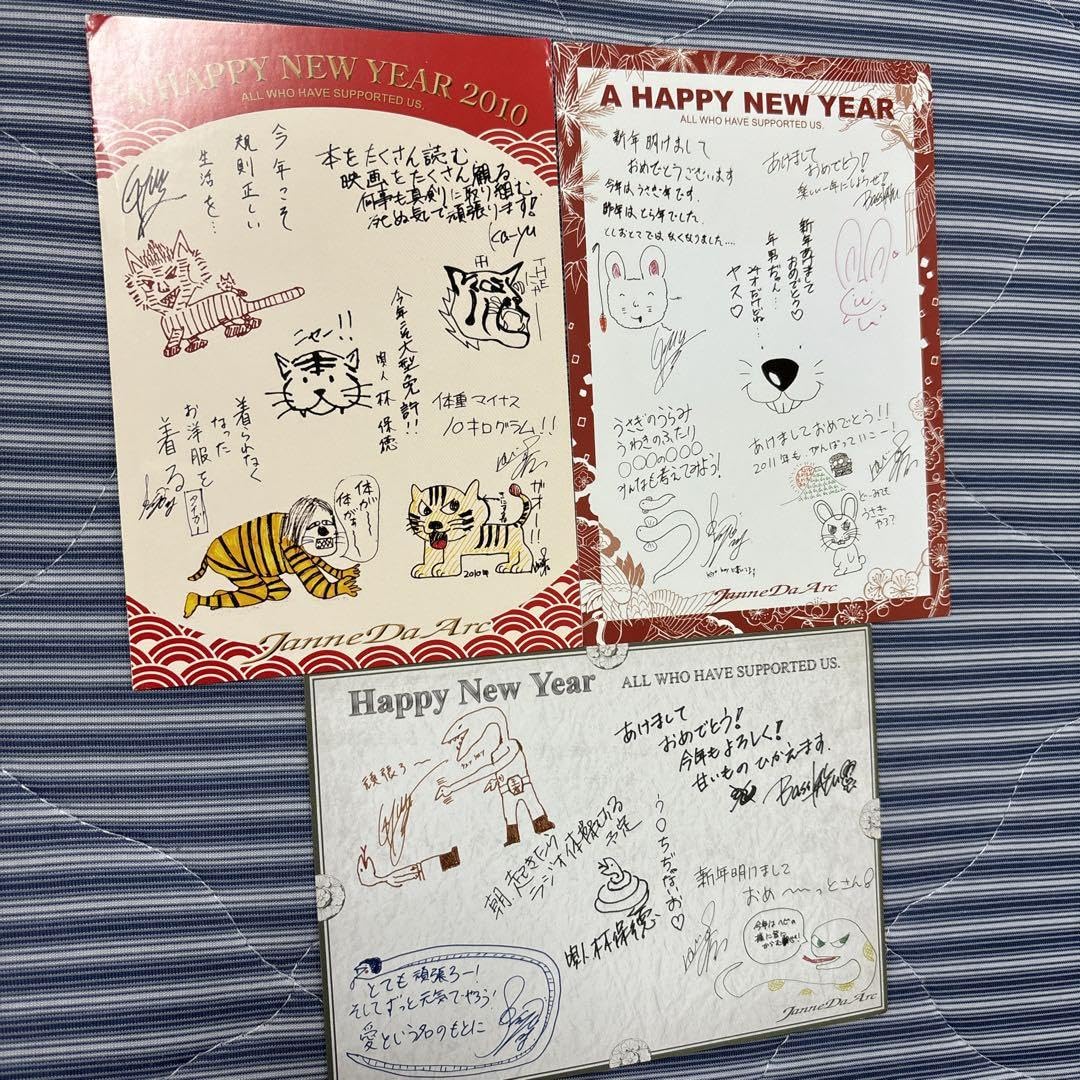 A HAPPY NEW YEAR 2010
ALL WHO HAVE SUPPORTED US.
今年こそ
規則正しい
生活を…
本をたくさん読む
映画をたくさん観る
何事も真剣に取り組む
死ぬ気で頑張ります!
ka-yu
ニャー!!
今年こそ大型免許!!
唄人 林 保徳
体重マイナス
10キログラム!!
着られなく
なった
お洋服を
着る
体が〜
体がぁ〜
ガオー!!
2010年
Janne Da Arc
A HAPPY NEW YEAR
ALL WHO HAVE SUPPORTED US.
新年明けまして
おめでとうございます
今年は、うさぎ年です。
昨年は、とら年でした。
としおとこではなくなりました....
あけまして
おめでとう!
楽しい一年にしようぜ!
新年あけまして
おめでとう♡
ヤス♡
うさぎのうらみ
うわきのふたり
〇〇〇の〇〇〇
みんなも考えてみよう!
あけましておめでとう!!
2011年も、がんばっていこー!
どーみても
うさぎ
やろ?
Janne Da Arc
Happy New Year
ALL WHO HAVE SUPPORTED US.
頑張ろ〜
あけまして
おめでとう!
今年もよろしく!
甘いもの ひかえます.
朝、起きたら
ラジオ体操をする
予定
う〇ちぢゃないお♡
唄人 林保徳
新年明けまして
おめ〜〜っとさん!
今年はヘビの
様に皆に
からむ
とても頑張ろー!
そしてずっと元気でやろう!
愛という名のもとに
Janne Da Arc